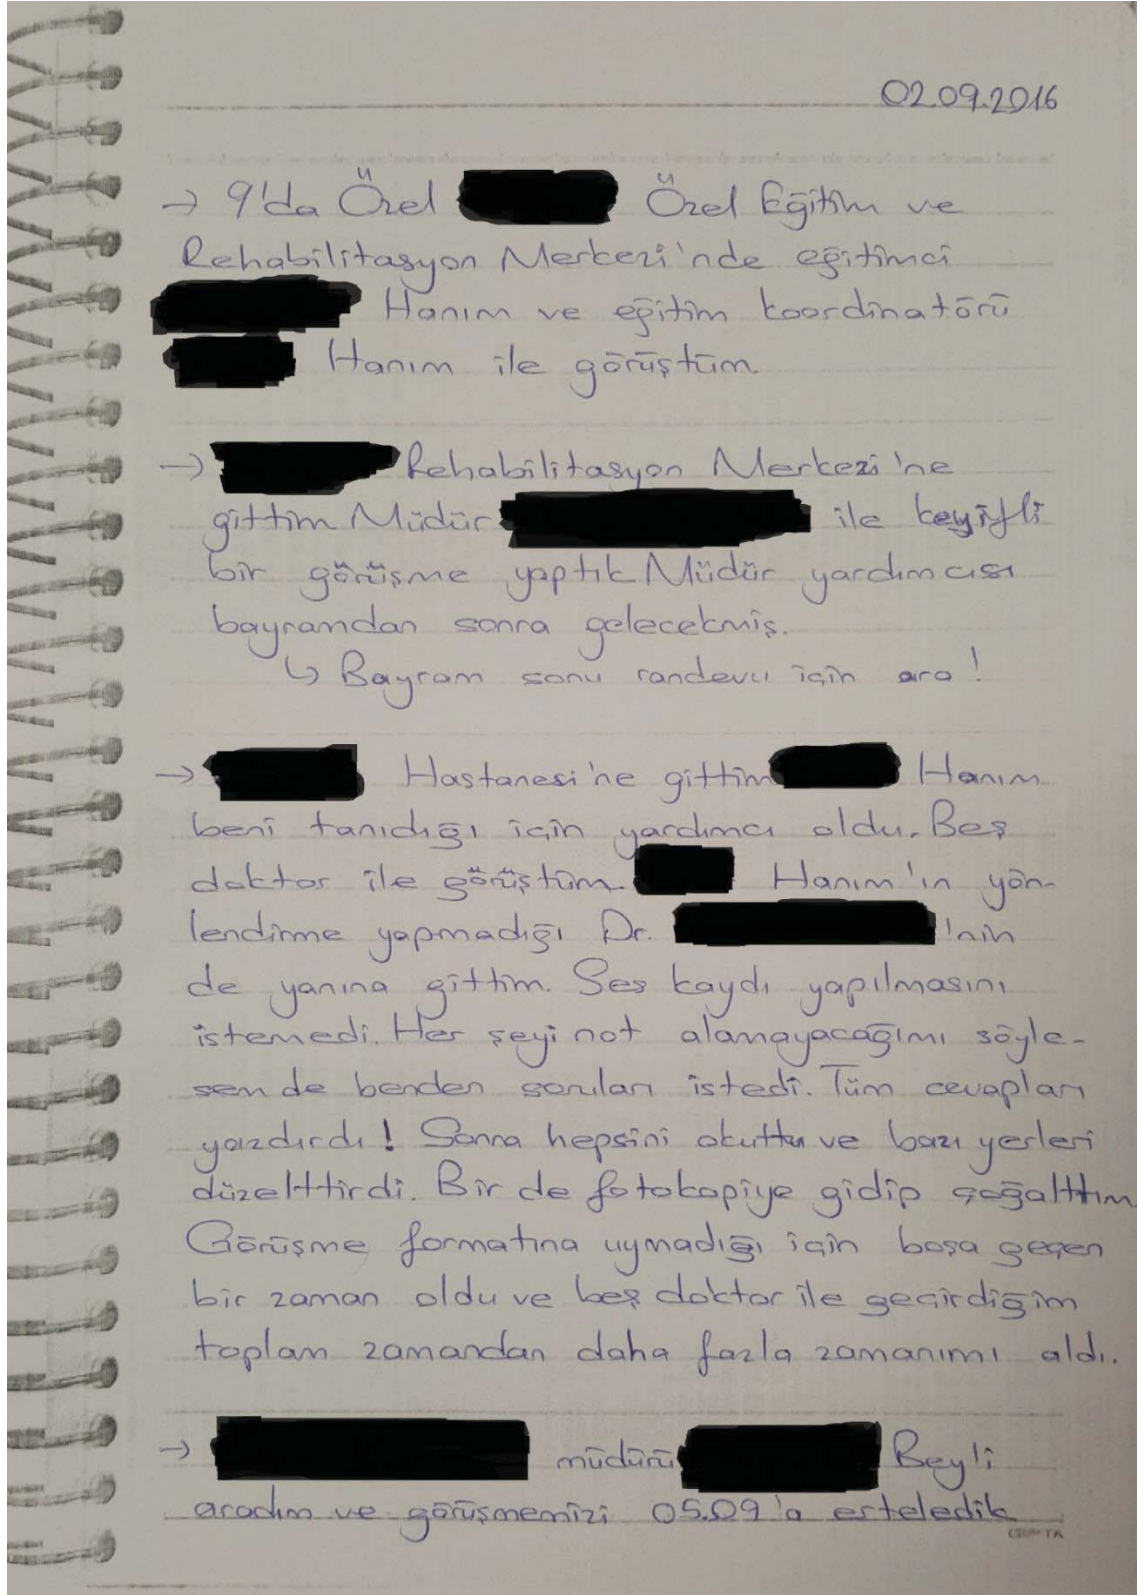 02.09.2016
→ 9'da Özel Özel Eğitim ve
Rehabilitasyon Merkezi'nde eğitimci
Hanım ve eğitim koordinatörü
Hanım ile görüştüm
→ Rehabilitasyon Merkezi'ne
gittim Müdür ile keyifli
bir görüşme yaptık Müdür yardımcısı
bayramdan sonra gelecekmiş.
↳ Bayram sonu randevu için ara!
→ Hastanesi'ne gittim Hanım
beni tanıdığı için yardımcı oldu. Beş
doktor ile görüştüm Hanım'ın yön-
lendirme yapmadığı Dr. 'nin
de yanına gittim. Ses kaydı yapılmasını
istemedi. Her şeyi not alamayacağımı söyle-
sem de benden soruları istedi. Tüm cevapları
yazdırdı! Sonra hepsini okuttu ve bazı yerleri
düzelttirdi. Bir de fotokopiye gidip çoğalttım
Görüşme formatına uymadığı için boşa geçen
bir zaman oldu ve beş doktor ile geçirdiğim
toplam zamandan daha fazla zamanımı aldı.
→ müdürü Bey'i
aradım ve görüşmemizi 05.09'a erteledik